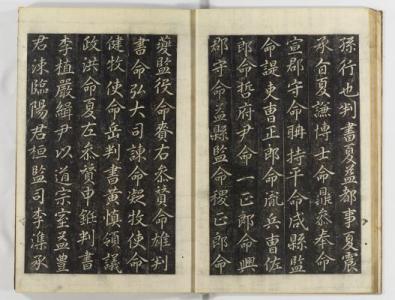 孫行也判書夏益都事夏震
承旨夏謙博士命鼎參奉命
宣郡守命聃持平命成縣監
命諟吏曹正郎命胤兵曹佐
郎命哲府尹命一正郎命興
郡守命益縣監命稷正郎命
夔監役命賚右參贊命雄判
書命弘大司諫命凝牧使命
健牧使命岳判書黃愼領議
政洪命夏左參贊申銋判書
李植嚴緝尹以道宗室孟豊
君涑臨陽君桓監司李澤承